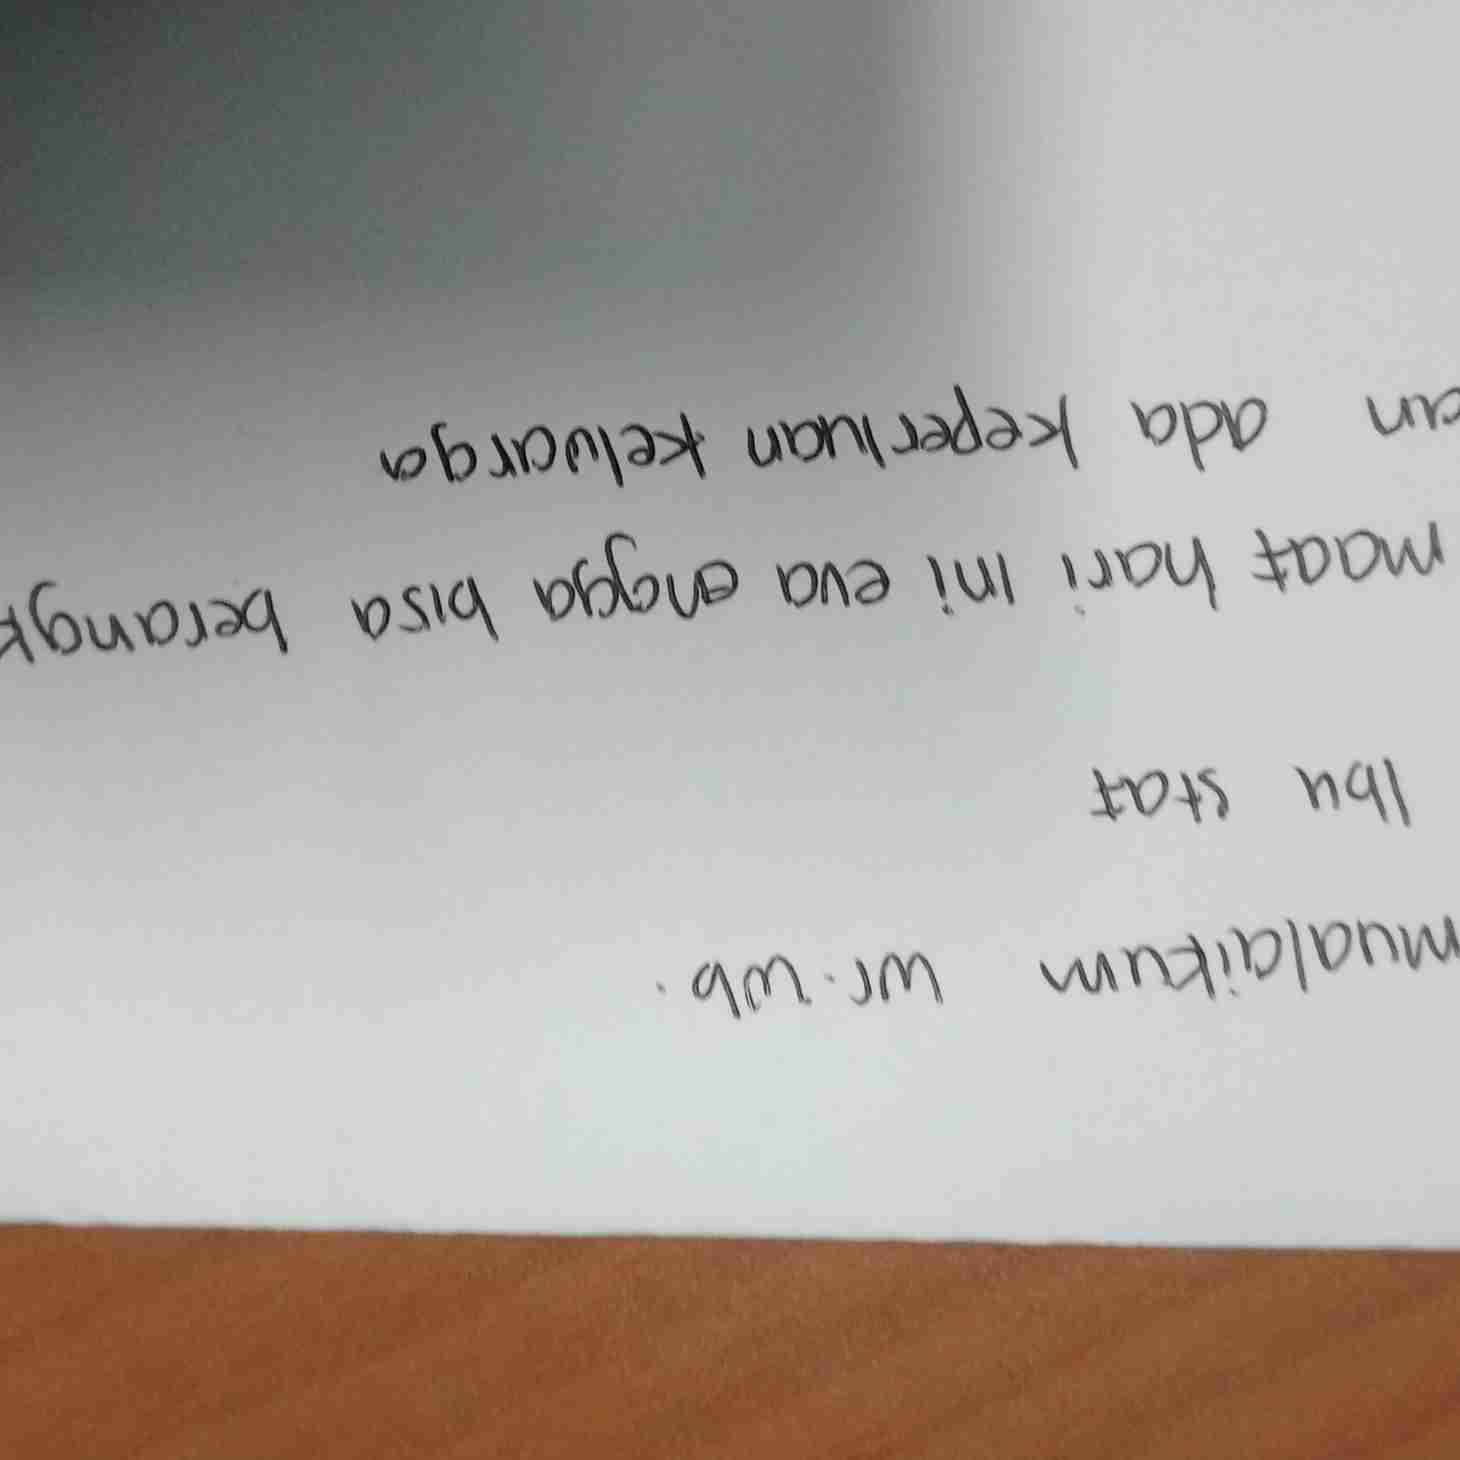 mualaikum wr. wb.
Ibu staf
maaf hari ini eva engga bisa berangk
an ada keperluan keluarga